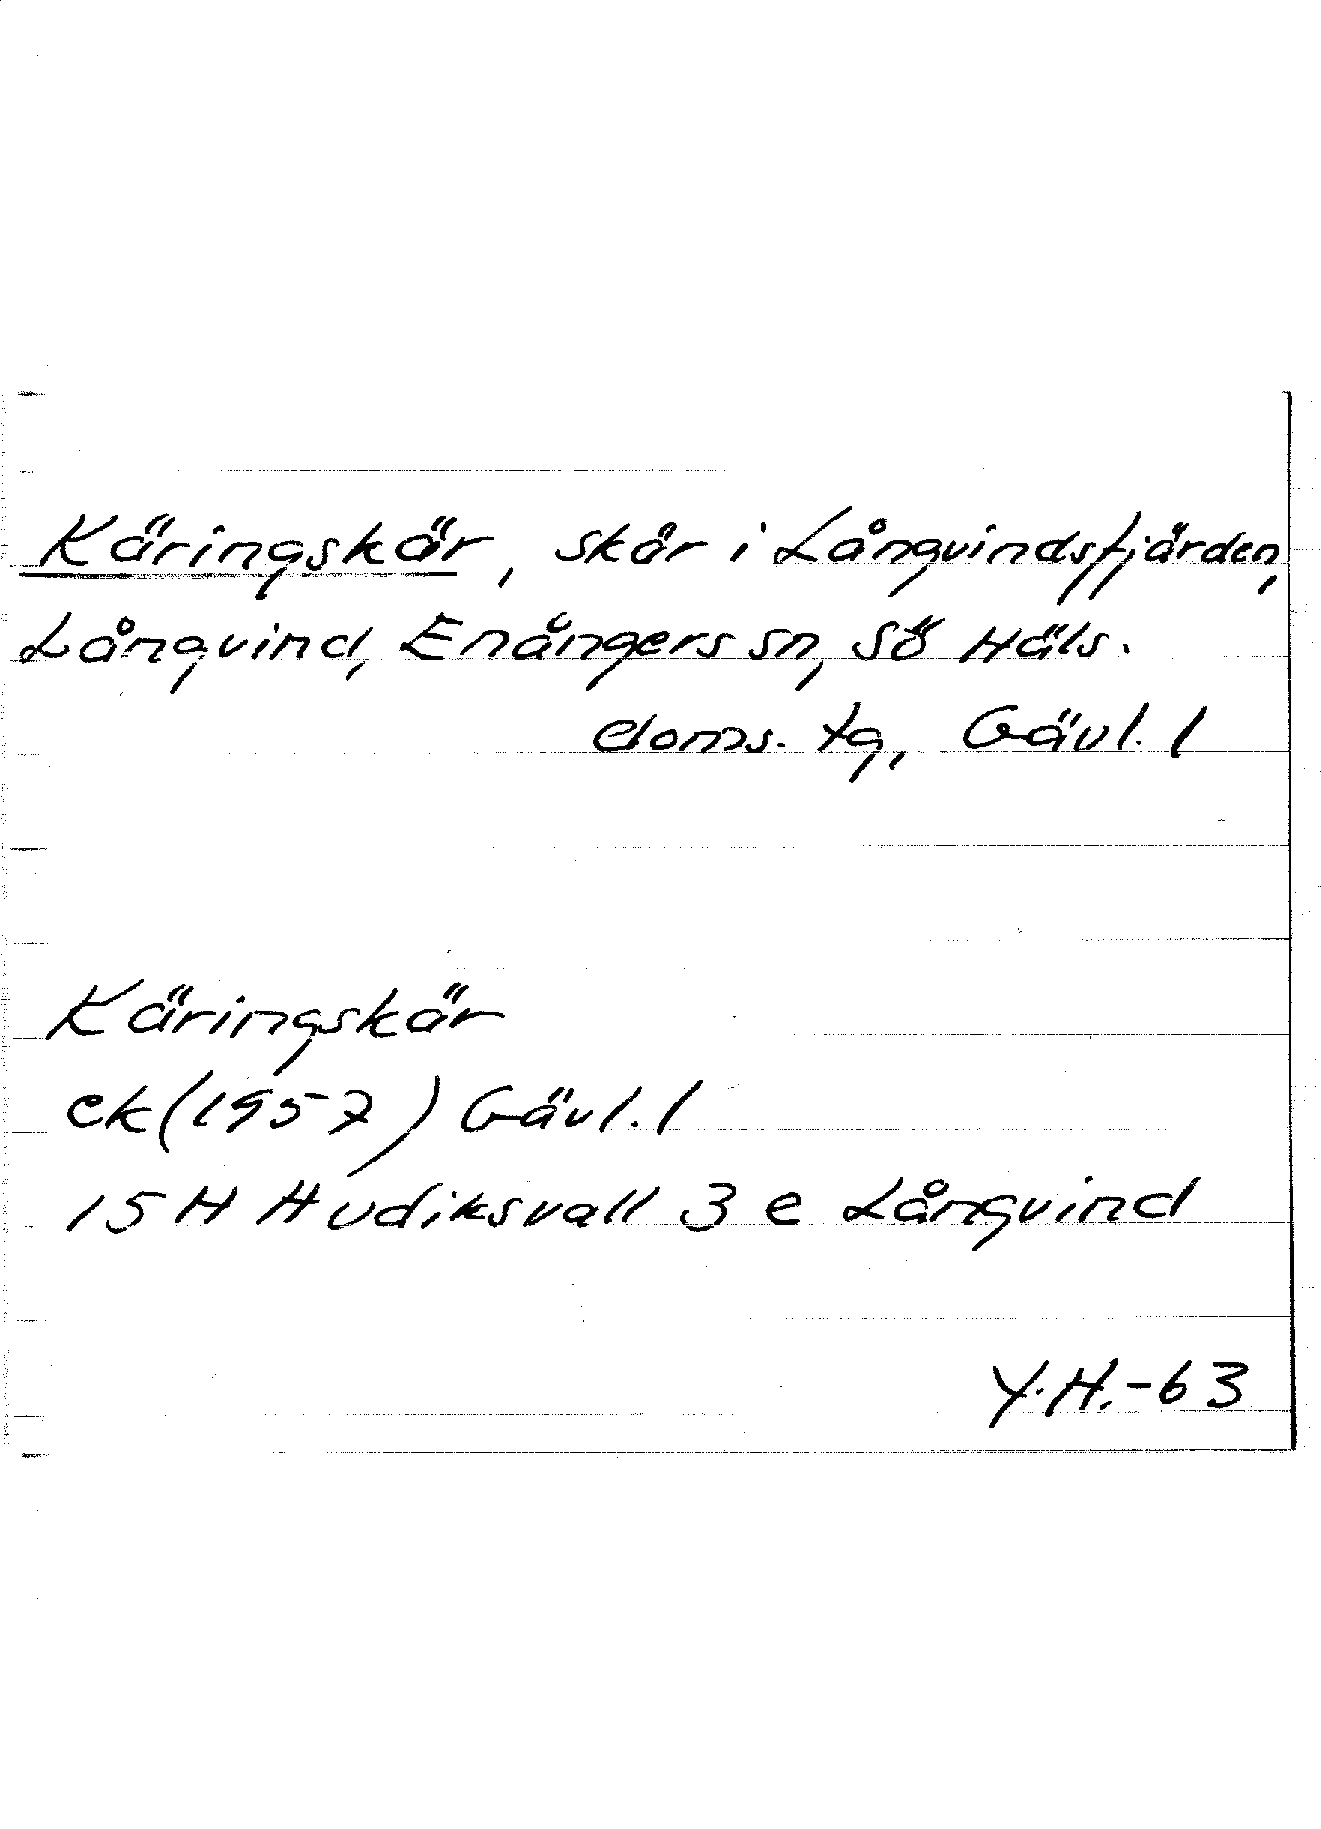 Käringskär, skär i Långvindsfjärden,
Långvind, Enångers sn, Sö Häls.
doms. tg, Gävl. l
Käringskär
ek (1957) Gävl. l
15 H Hudiksvall 3 e Långvind
Y.H.-63